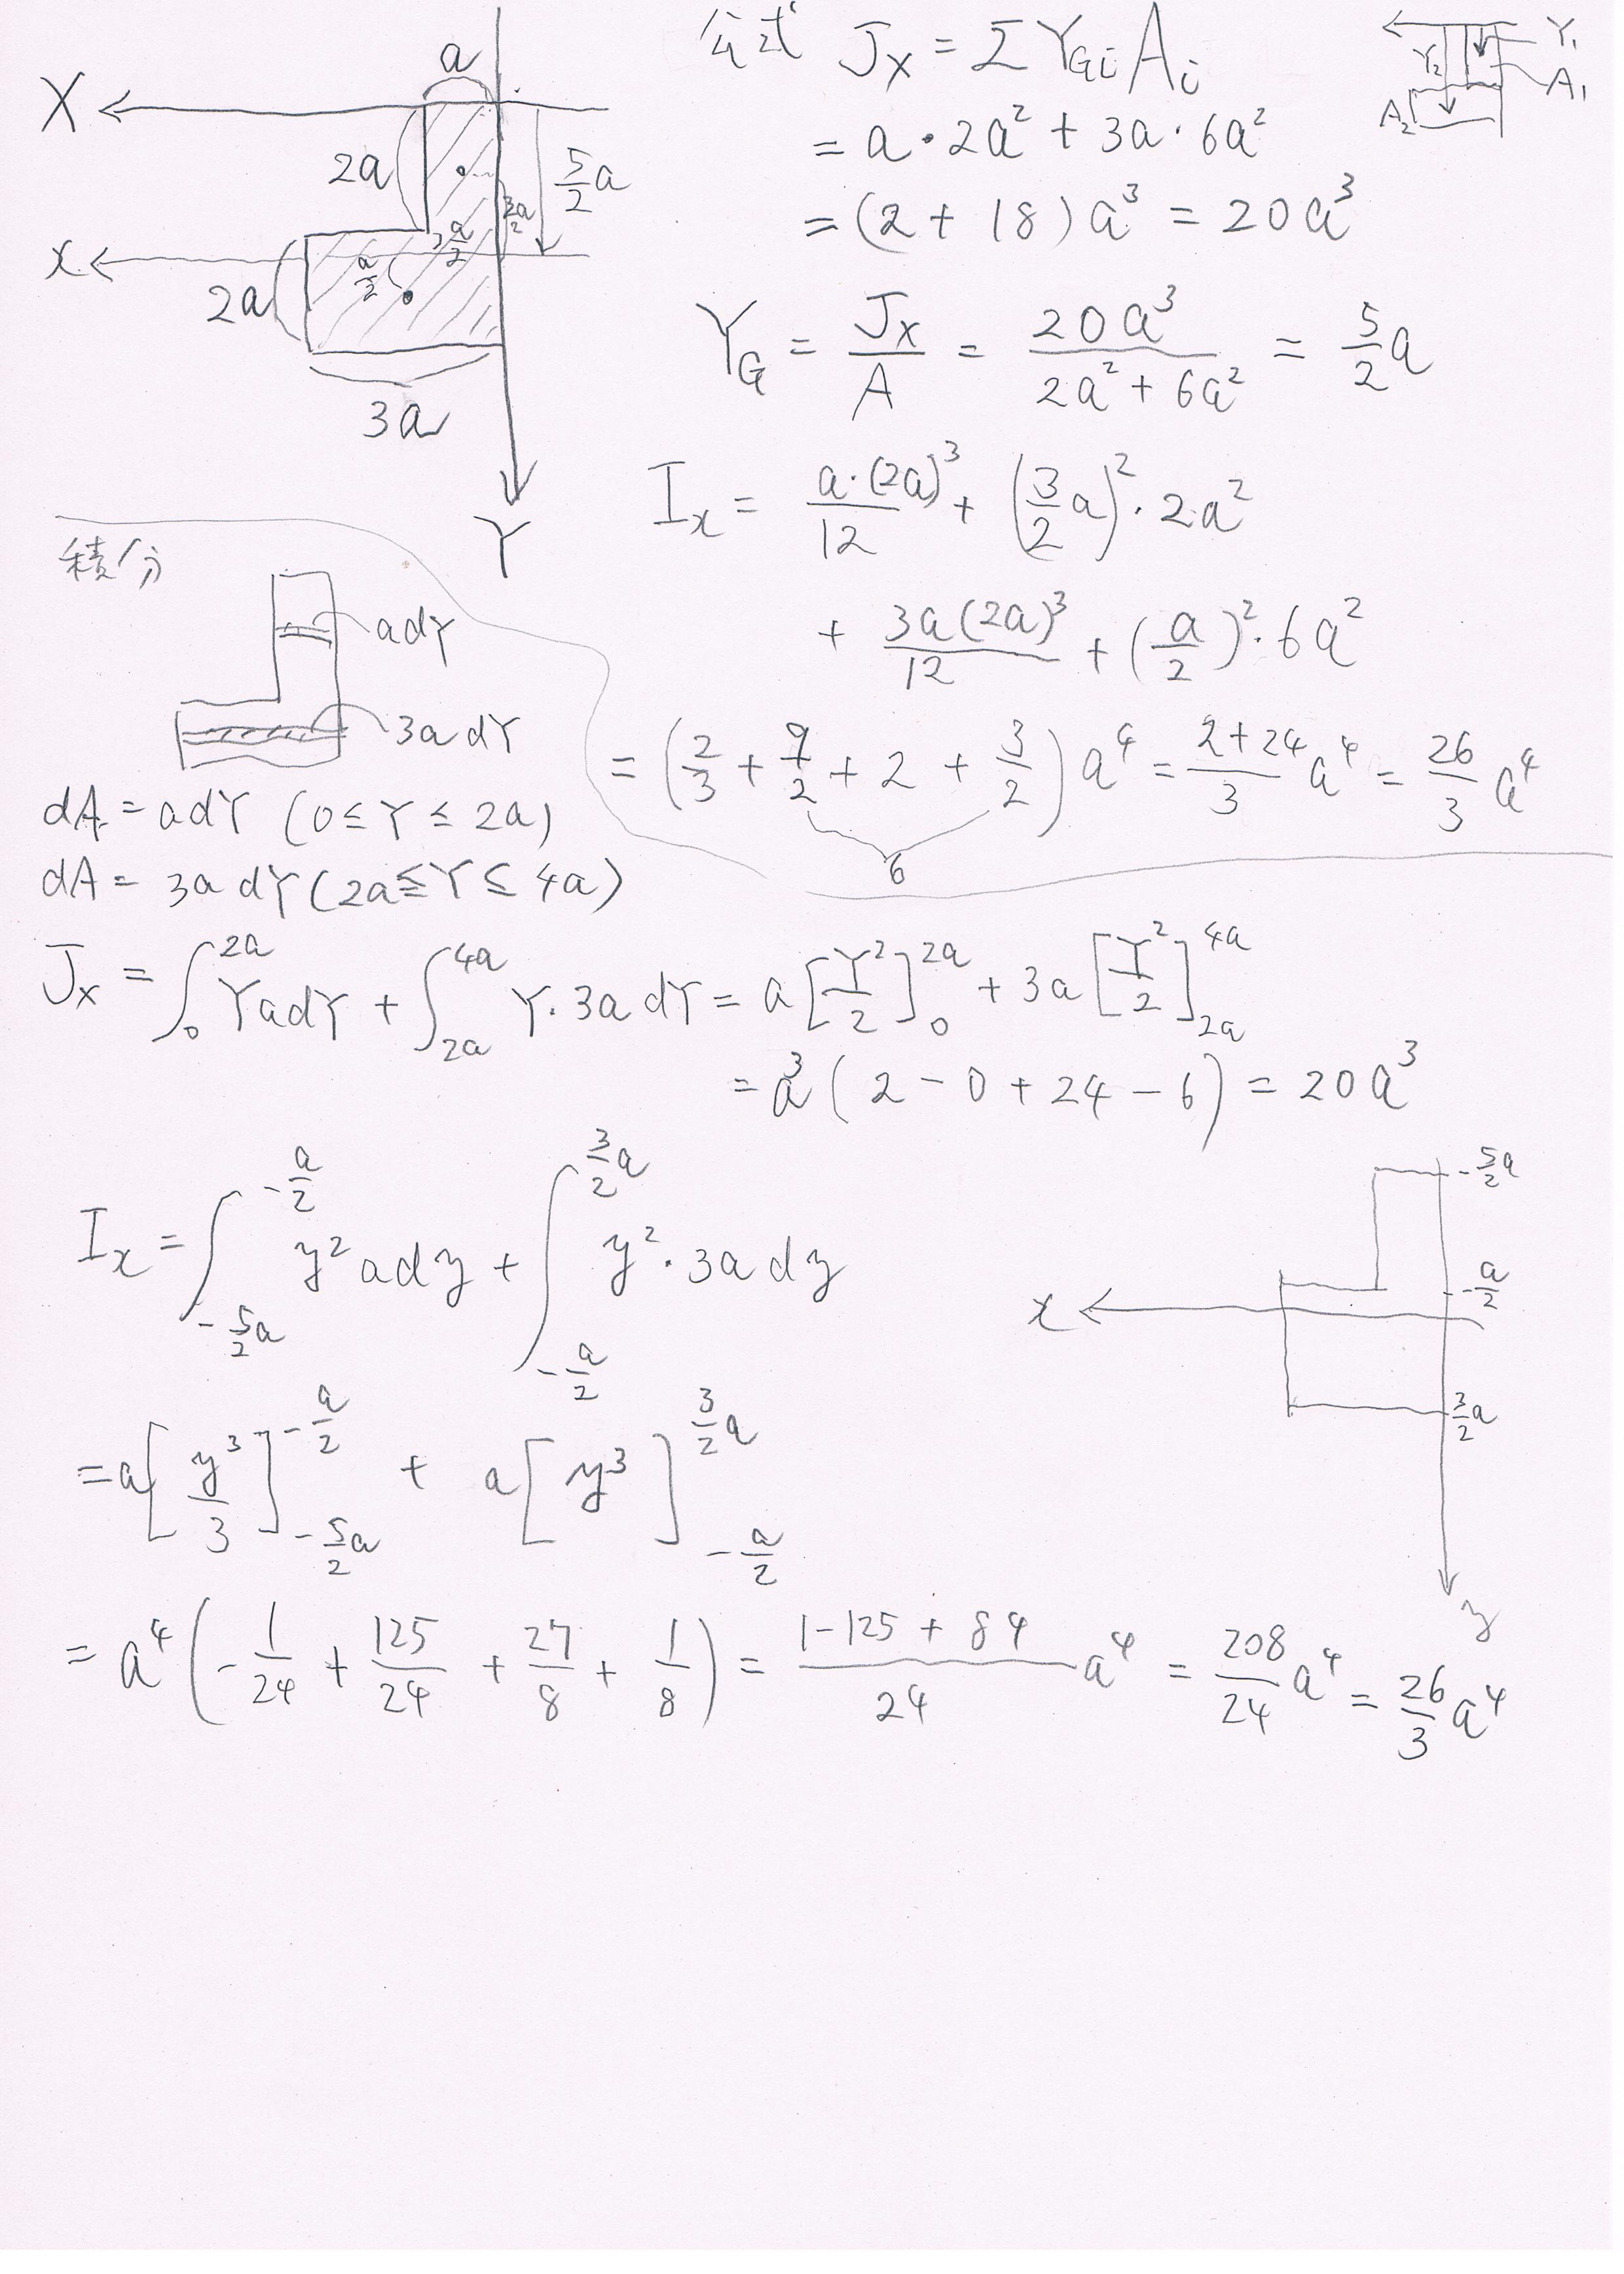 公式 J_X = Σ Y_Gi A_i
= a・2a² + 3a・6a²
= (2 + 18) a³ = 20a³
Y_G = J_X / A = 20a³ / (2a² + 6a²) = 5/2 a
I_x = a・(2a)³ / 12 + (3/2 a)²・2a²
+ 3a(2a)³ / 12 + (a/2)²・6a²
= (2/3 + 9/2 + 2 + 3/2) a⁴ = (2+24)/3 a⁴ = 26/3 a⁴
6
Y₁
Y₂
A₁
A₂
a
X
2a
5/2 a
3a/2
a/2
x
a/2
2a
3a
Y
積分
adY
3a dY
dA = adY (0 ≦ Y ≦ 2a)
dA = 3a dY (2a ≦ Y ≦ 4a)
J_X = ∫₀^{2a} Y a dY + ∫_{2a}^{4a} Y・3a dY = a [Y²/2]₀^{2a} + 3a [Y²/2]_{2a}^{4a}
= a³ (2 − 0 + 24 − 6) = 20a³
I_x = ∫_{-5/2 a}^{-a/2} y² a dy + ∫_{-a/2}^{3/2 a} y²・3a dy
= a [y³/3]_{-5/2 a}^{-a/2} + a [y³]_{-a/2}^{3/2 a}
= a⁴ (−1/24 + 125/24 + 27/8 + 1/8) = (1−125 + 84)/24 a⁴ = 208/24 a⁴ = 26/3 a⁴
-5/2 a
-a/2
x
3/2 a
y